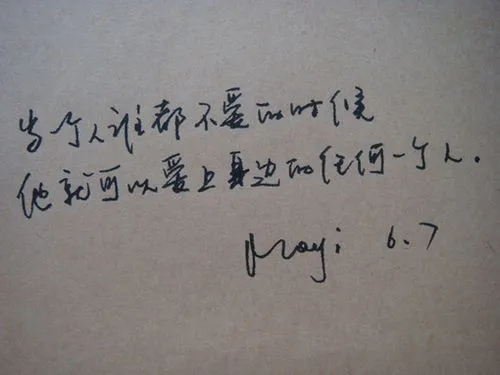 当个人谁都不爱的时候
他就可以爱上身边的任何一个人.
Mayi 6.7